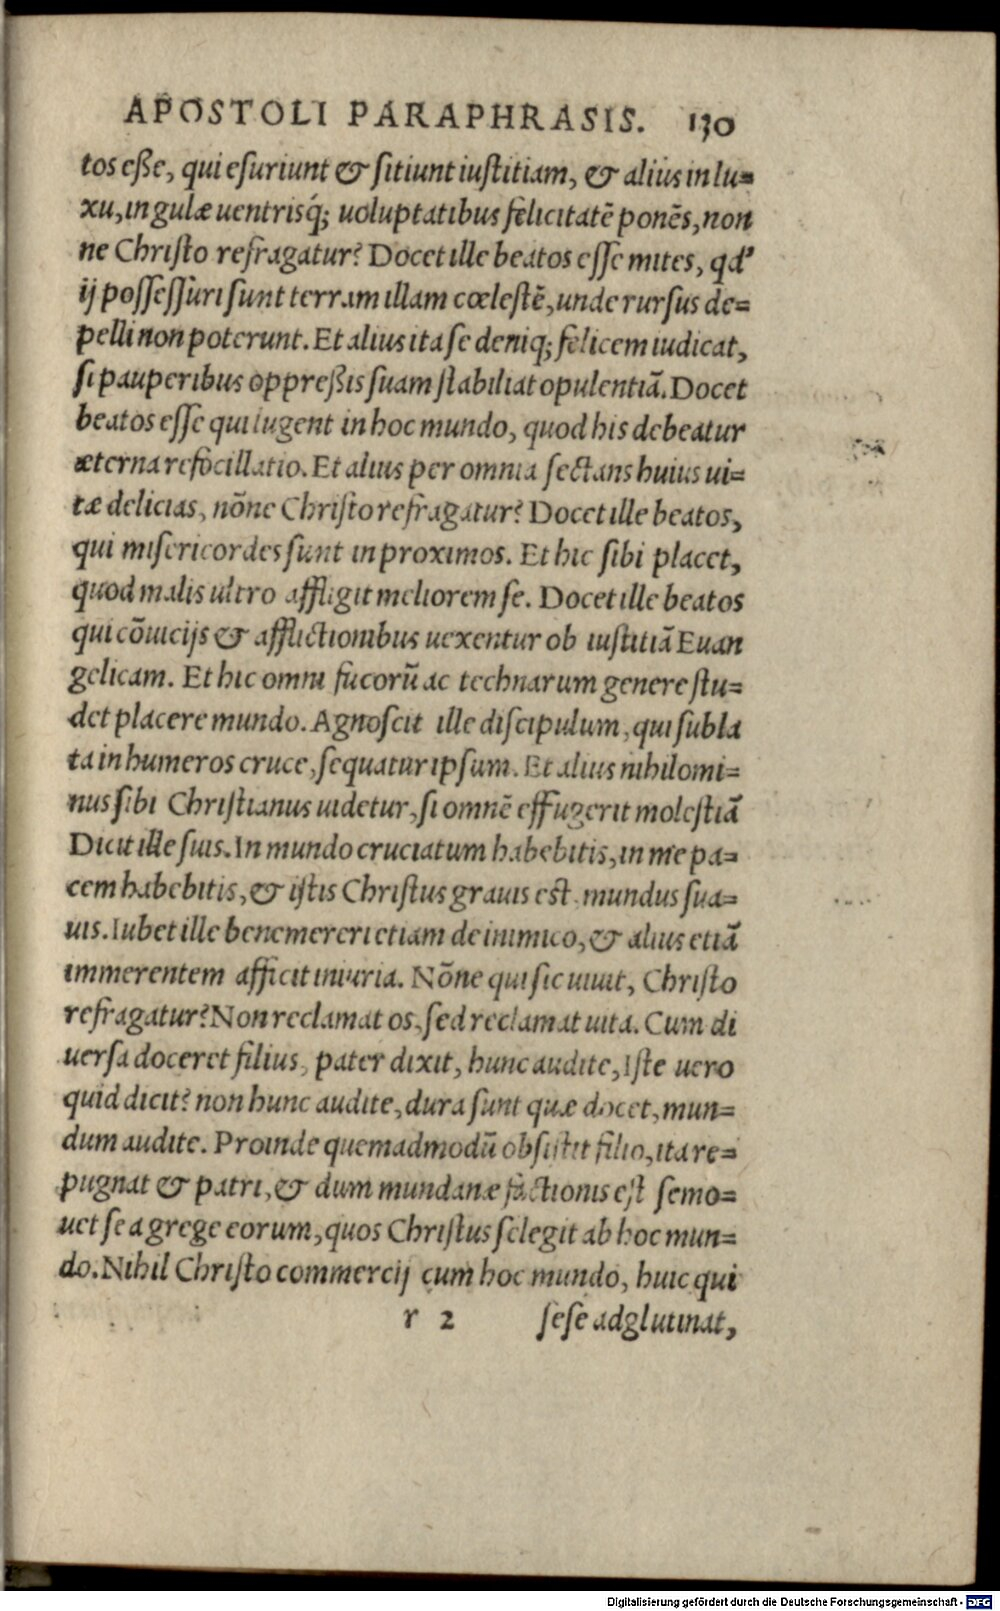 APOSTOLI PARAPHRASIS. 130
tos eße, qui esuriunt & sitiunt iustitiam, & alius in lu=
xu, in gulæ uentrisq́; uoluptatibus felicitatē ponēs, non
ne Christo refragatur? Docet ille beatos esse mites, qd'
ij possessuri sunt terram illam cœlestē, unde rursus de=
pelli non poterunt. Et alius ita se deniq; felicem iudicat,
si pauperibus oppreßis suam stabiliat opulentiā. Docet
beatos esse qui lugent in hoc mundo, quod his debeatur
æterna refocillatio. Et alius per omnia sectans huius ui=
tæ delicias, nōne Christo refragatur? Docet ille beatos,
qui misericordes sunt in proximos. Et hic sibi placet,
quod malis ultro affligit meliorem se. Docet ille beatos
qui cōuicijs & afflictionibus uexentur ob iustitiā Euan
gelicam. Et hic omni fucorū ac technarum genere stu=
det placere mundo. Agnoscit ille discipulum, qui subla
ta in humeros cruce, sequatur ipsum. Et alius nihilomi=
nus sibi Christianus uidetur, si omnē effugerit molestiā
Dicit ille suis. In mundo cruciatum habebitis, in me pa=
cem habebitis, & istis Christus grauis est, mundus sua=
uis. Iubet ille benemereri etiam de inimico, & alius etiā
immerentem afficit iniuria. Nōne qui sic uiuit, Christo
refragatur? Non reclamat os, sed reclamat uita. Cum di
uersa doceret filius, pater dixit, hunc audite, Iste uero
quid dicit? non hunc audite, dura sunt quæ docet, mun=
dum audite. Proinde quemadmodū obsistit filio, ita re=
pugnat & patri, & dum mundanæ factionis est semo=
uet se a grege eorum, quos Christus selegit ab hoc mun=
do. Nihil Christo commercij cum hoc mundo, huic qui
r 2 sese adglutinat,
Digitalisierung gefördert durch die Deutsche Forschungsgemeinschaft - DFG